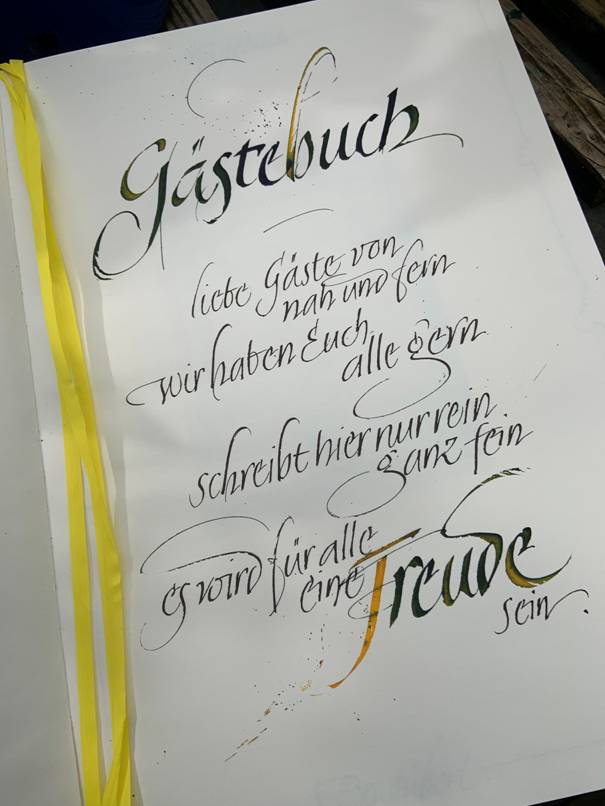 Gästebuch
liebe Gäste von
nah und fern
wir haben Euch
alle gern
schreibt hier nur rein
ganz fein
es wird für alle
eine Freude
sein.